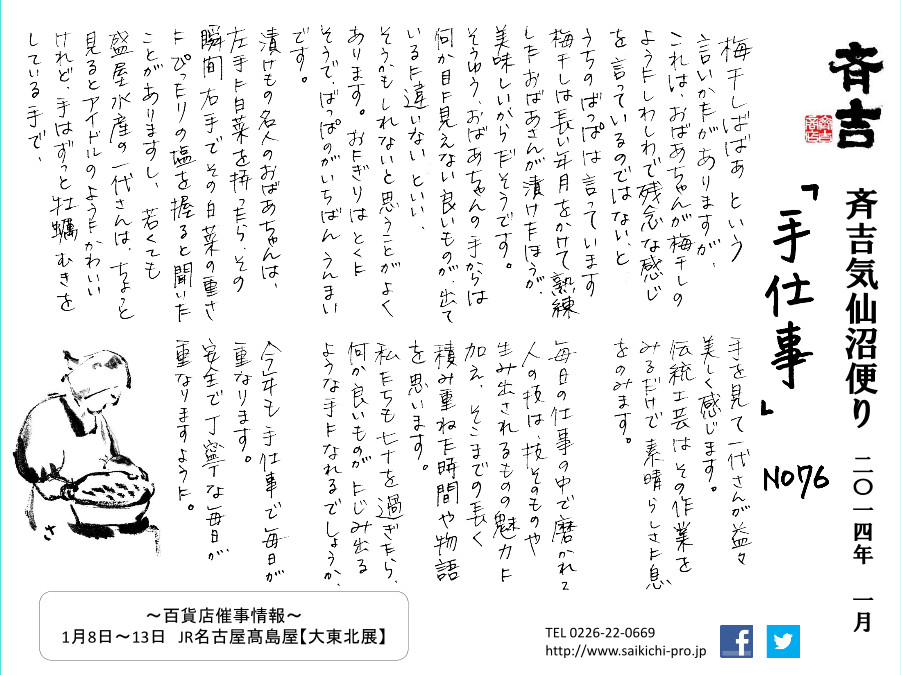 斉吉
斉吉気仙沼便り 二〇一四年 一月
「手仕事」
No76
梅干しばばぁ という
言いかたがありますが、
これは、おばあちゃんが梅干しの
ようにしわしわで残念な感じ
を言っているのではないと
うちのばっぱは言っています
梅干しは長い年月をかけて熟練
したおばあさんが漬けたほうが、
美味しいからだそうです。
そうゆう、おばあちゃんの手からは
何か目に見えない良いものが、出て
いるに違いない、といい、
そうかもしれないと思うことがよく
あります。おにぎりはとくに
そうで、ばっぱのがいちばんうんまい
です。
漬けもの名人のおばあちゃんは、
左手に白菜を持ったら、その
瞬間右手でその白菜の重さ
にぴったりの塩を握ると聞いた
ことがありますし、若くても
盛屋水産の一代さんは、ちょっと
見るとアイドルのようにかわいい
けれど、手はずっと牡蠣むきを
している手で、
手を見て一代さんが益々
美しく感じます。
伝統工芸はその作業を
みるだけで素晴らしさに息
をのみます。
毎日の仕事の中で磨かれて
人の技は、技そのものや
生み出されるものの魅力に
加え、そこまでの長く
積み重ねた時間や物語
を思います。
私たちも七十を過ぎたら、
何か良いものがにじみ出る
ような手になれるでしょうか、
今年も手仕事で毎日が
重なります。
安全で丁寧な毎日が
重なりますように。
さ
～百貨店催事情報～
1月8日～13日 JR名古屋髙島屋【大東北展】
TEL 0226-22-0669
http://www.saikichi-pro.jp